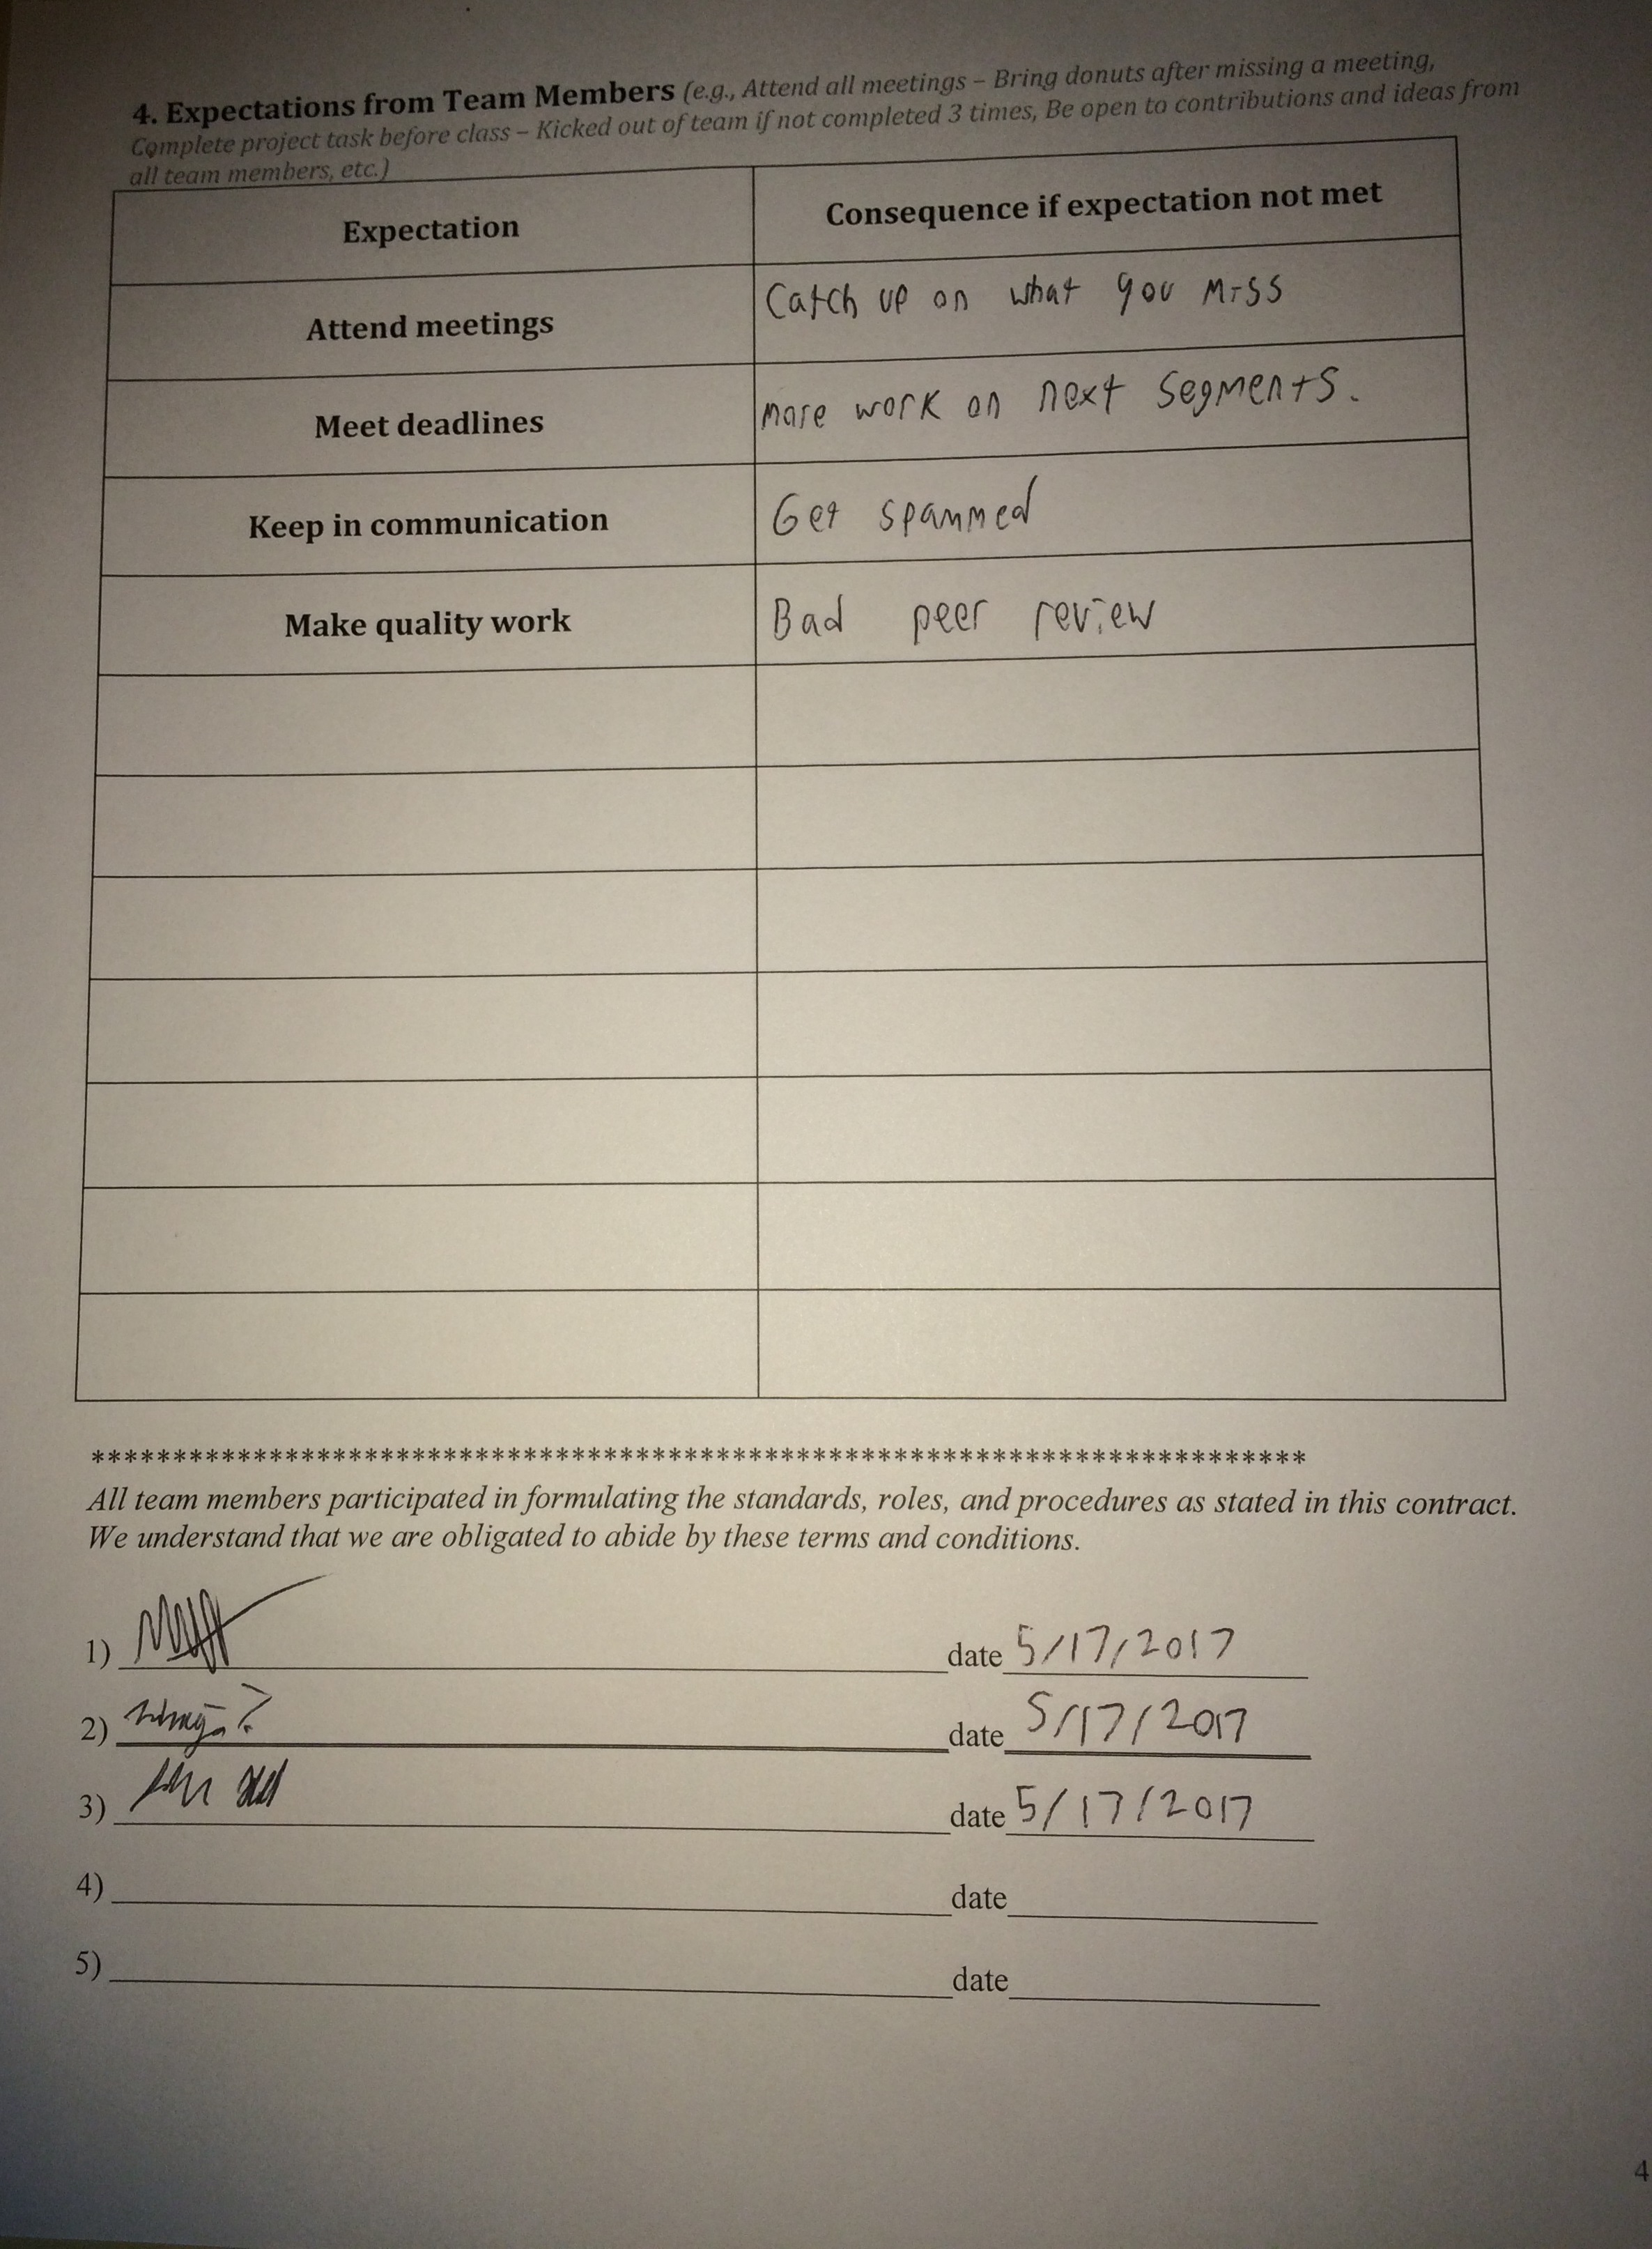 4. Expectations from Team Members (e.g., Attend all meetings – Bring donuts after missing a meeting,
Complete project task before class – Kicked out of team if not completed 3 times, Be open to contributions and ideas from
all team members, etc.)
Expectation Consequence if expectation not met
Attend meetings Catch up on what you miss
Meet deadlines more work on next segments.
Keep in communication Get spammed
Make quality work Bad peer review
****************************************************************************
All team members participated in formulating the standards, roles, and procedures as stated in this contract.
We understand that we are obligated to abide by these terms and conditions.
1) date 5/17/2017
2) date 5/17/2017
3) date 5/17/2017
4) date
5) date
4